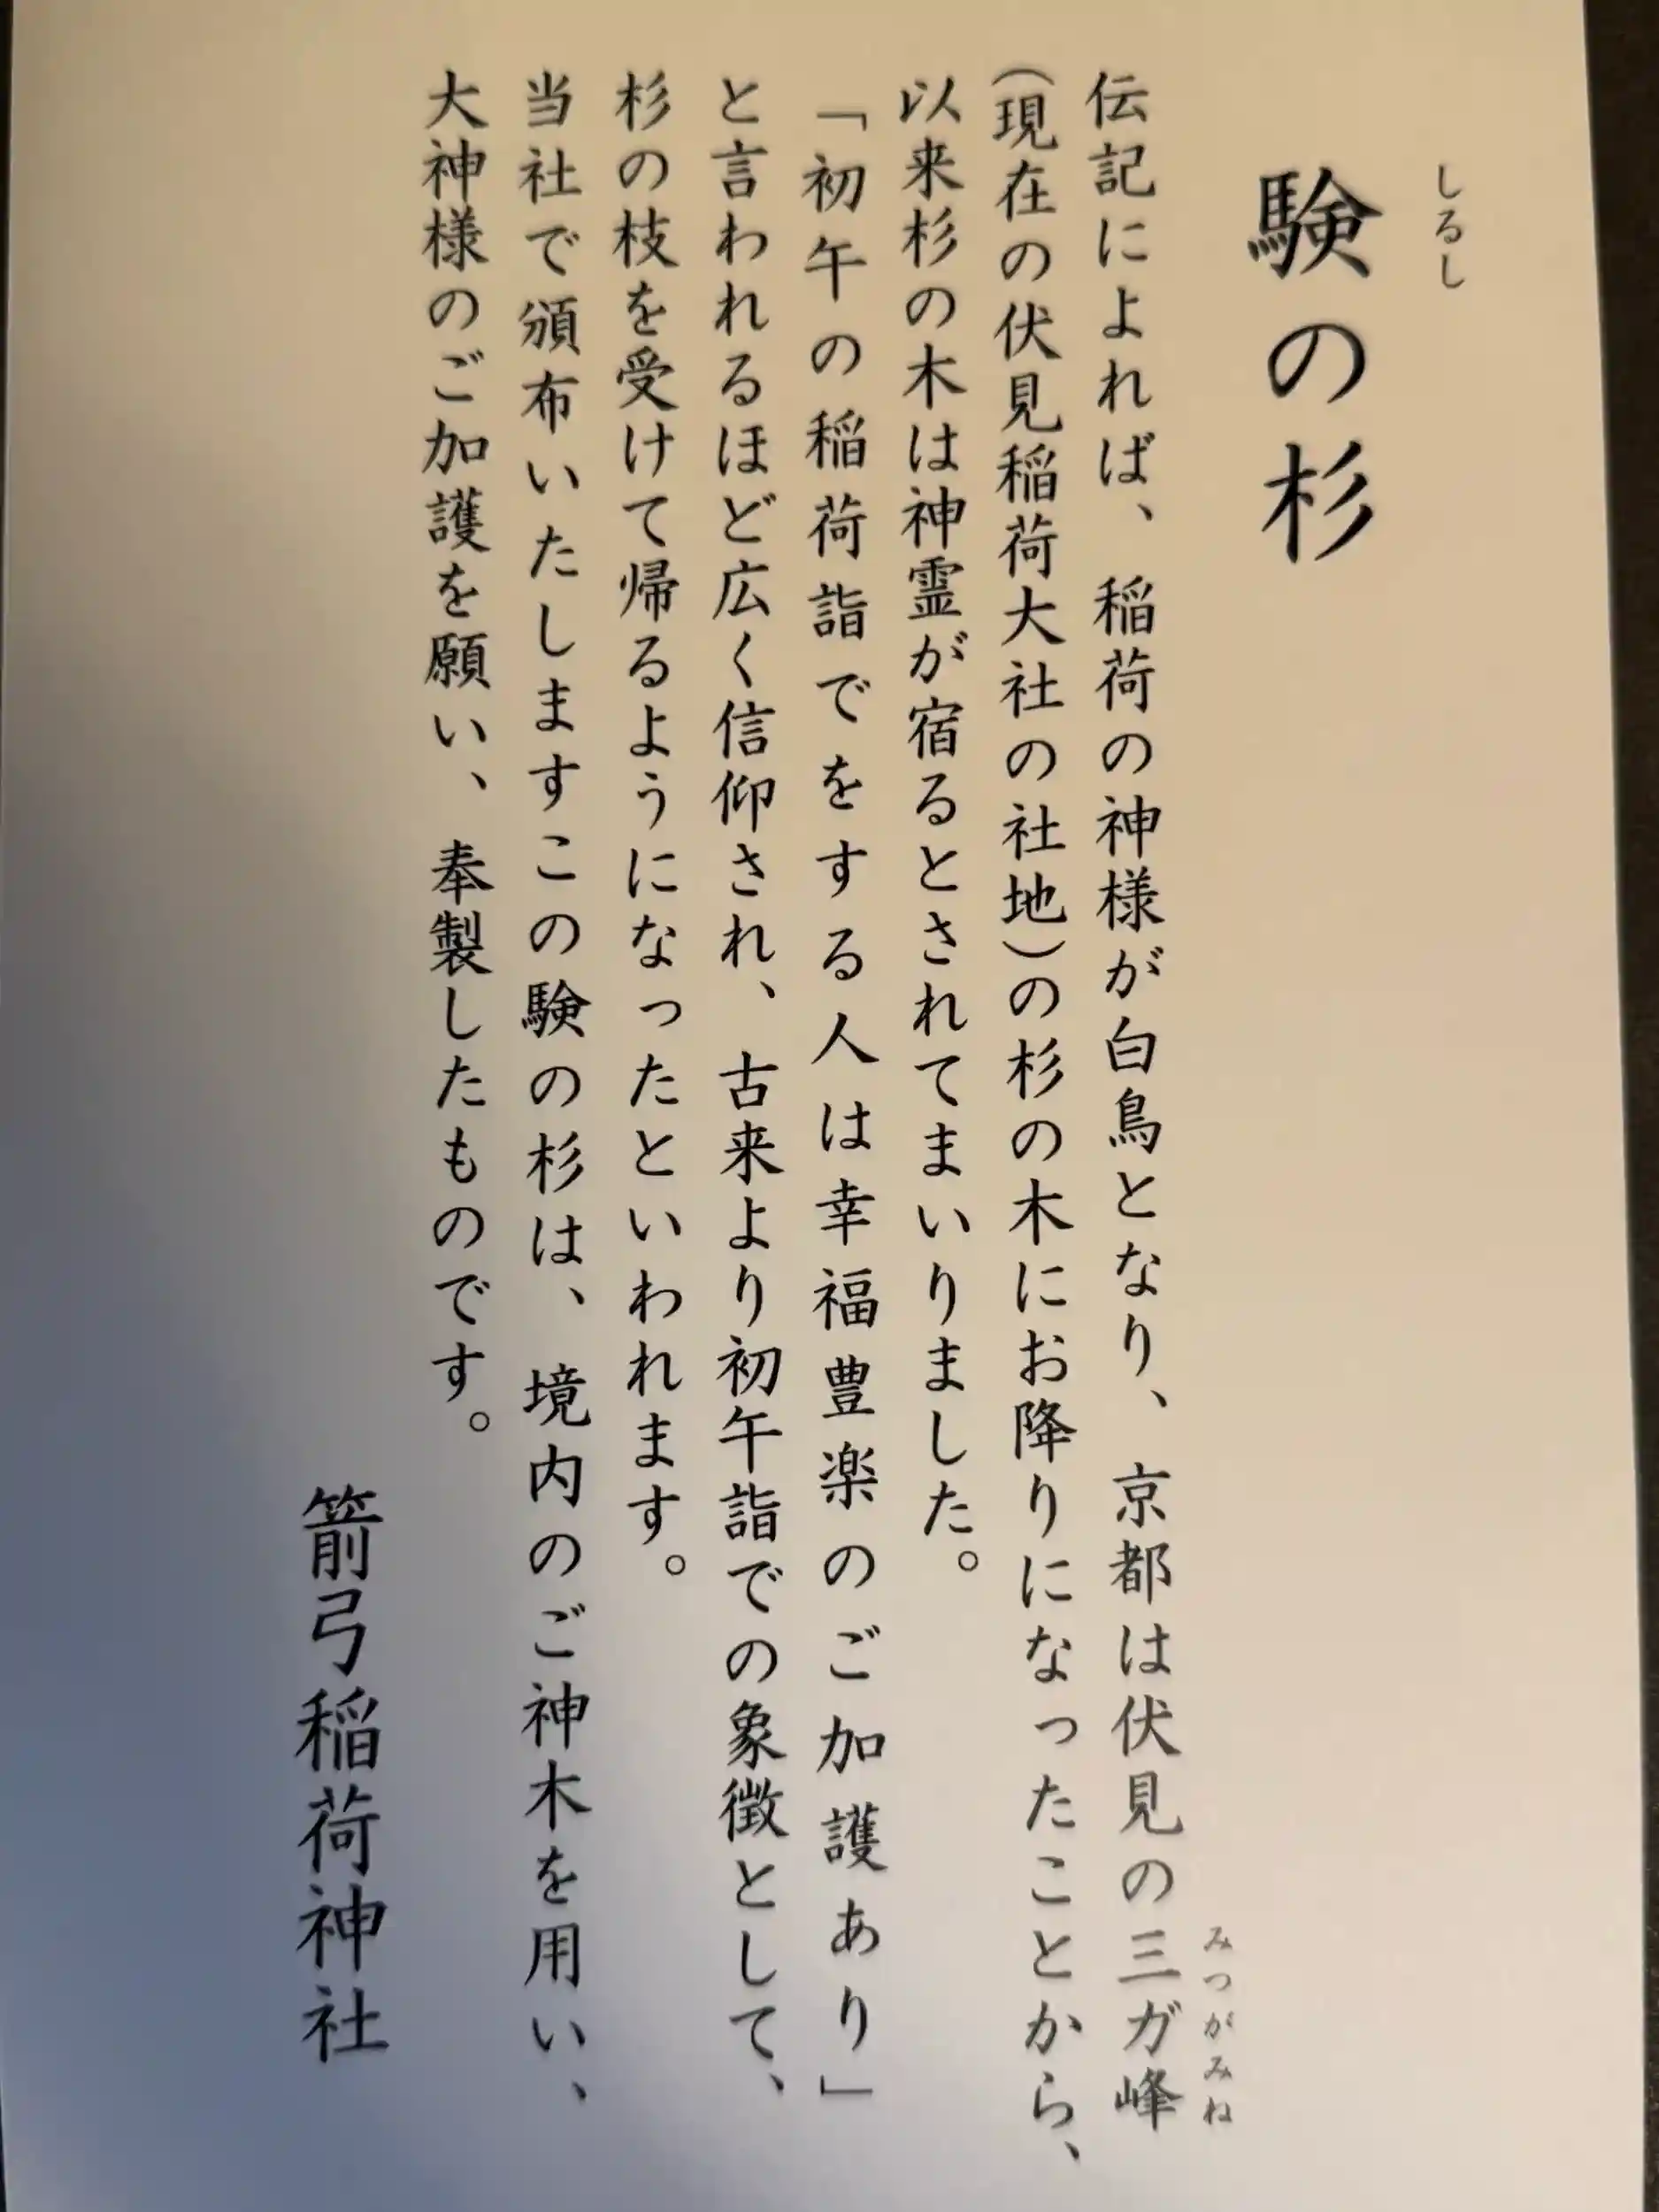 しるし
験の杉
伝記によれば、稲荷の神様が白鳥となり、京都は伏見の三ガ峰
みつがみね
(現在の伏見稲荷大社の社地)の杉の木にお降りになったことから、
以来杉の木は神霊が宿るとされてまいりました。
「初午の稲荷詣でをする人は幸福豊楽のご加護あり」
と言われるほど広く信仰され、古来より初午詣での象徴として、
杉の枝を受けて帰るようになったといわれます。
当社で頒布いたしますこの験の杉は、境内のご神木を用い、
大神様のご加護を願い、奉製したものです。
箭弓稲荷神社